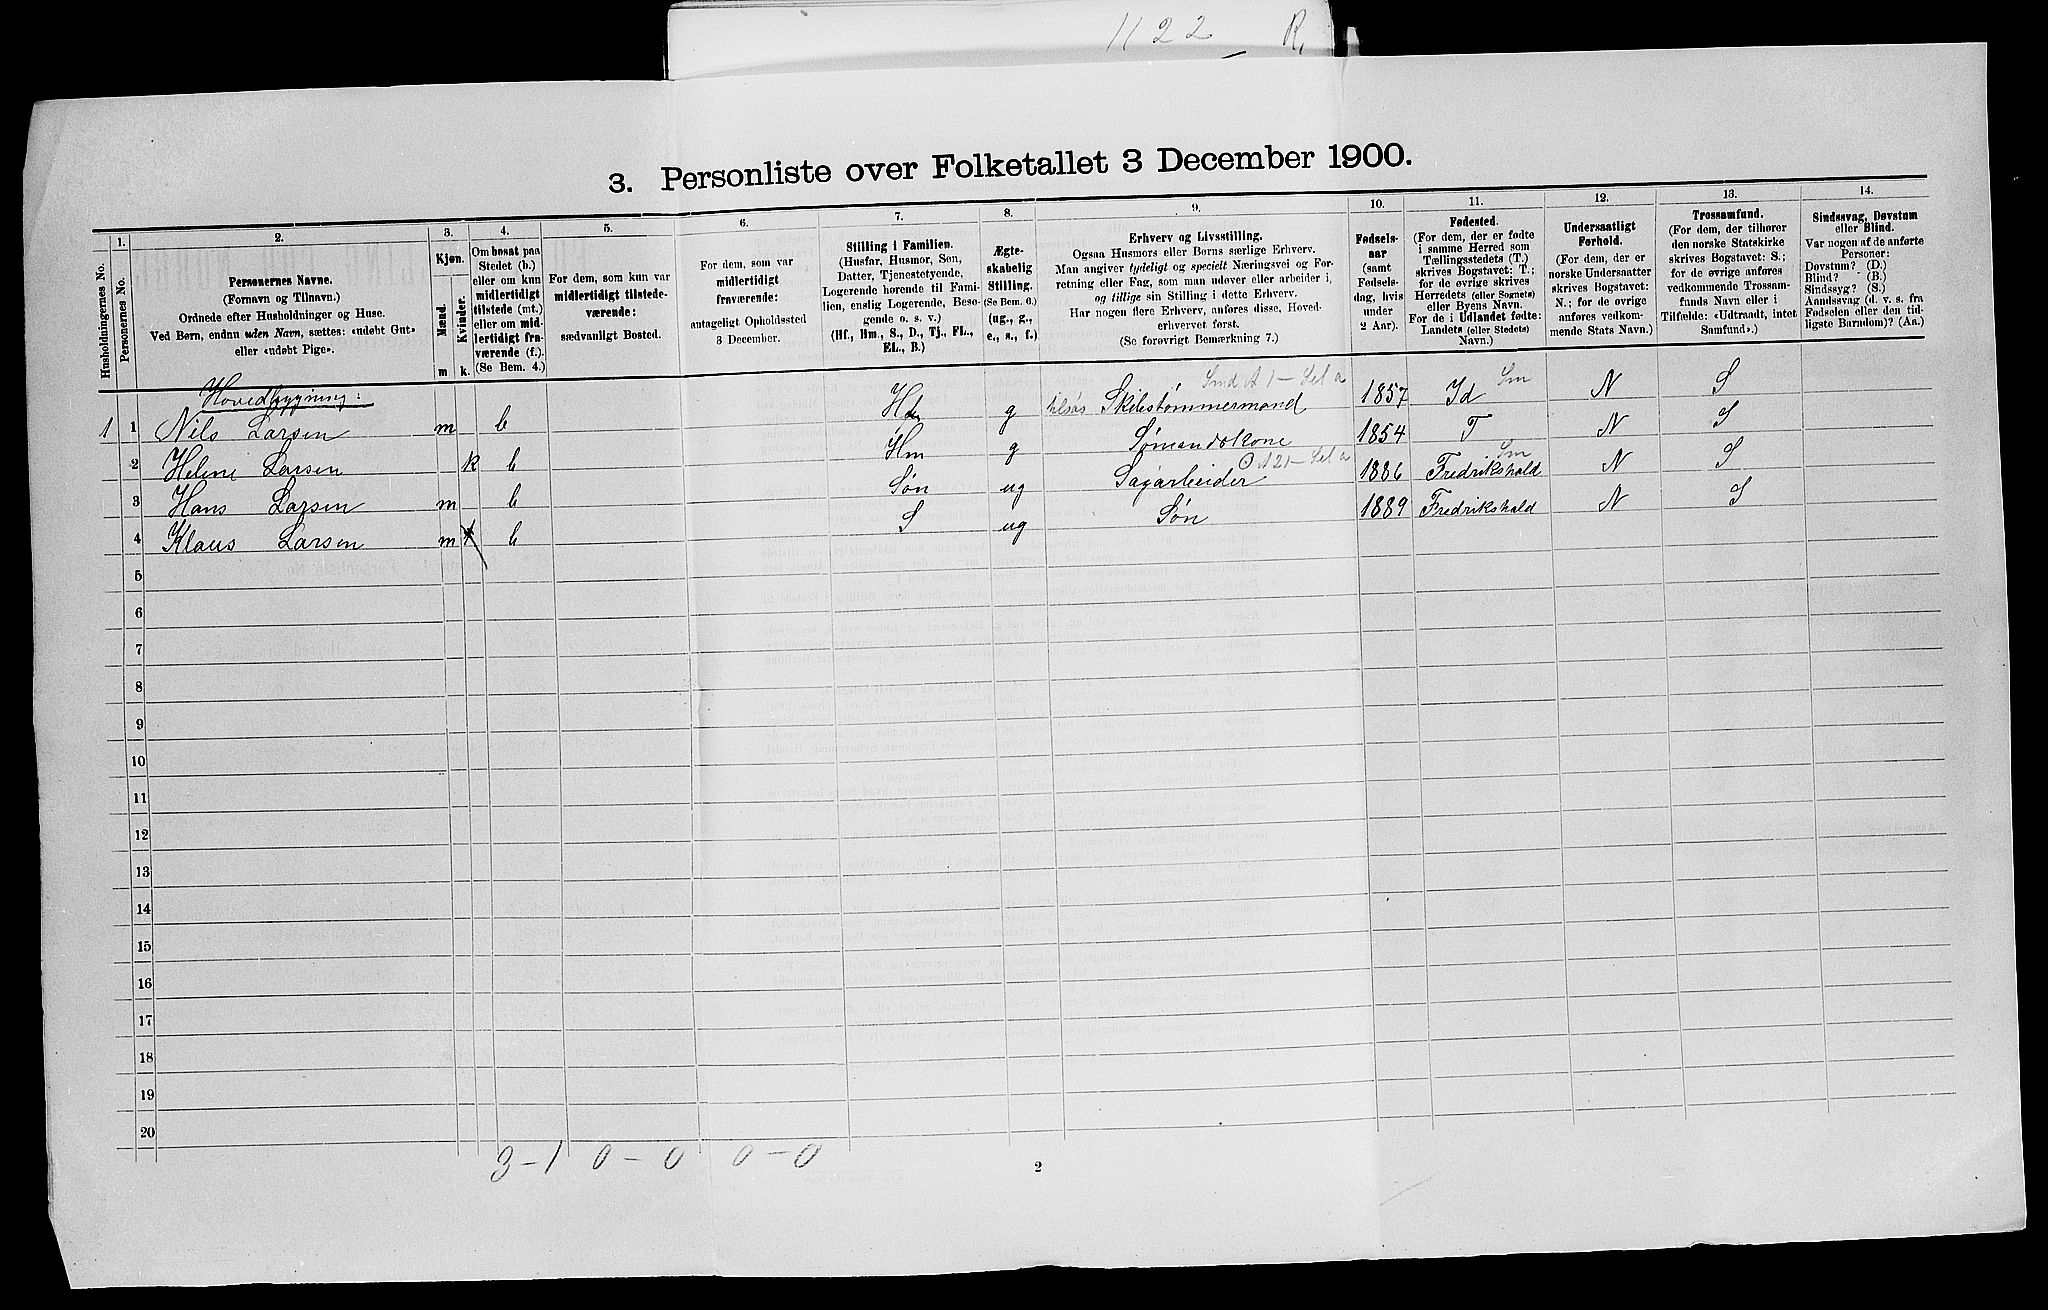 1122 R.
3. Personliste over Folketallet 3 December 1900.
Husholdningernes No.
1.
Personernes No.
2.
Personernes Navne.
(Fornavn og Tilnavn.)
Ordnede efter Husholdninger og Huse.
Ved Børn, endnu uden Navn, sættes: «udøbt Gut»
eller «udøbt Pige».
3.
Kjøn.
Mænd.
Kvinder.
m k.
4.
Om bosat paa
Stedet (b.)
eller om kun
midlertidigt
tilstede (mt.)
eller om mid-
lertidigt fra-
værende (f.).
(Se Bem. 4.)
5.
For dem, som kun var
midlertidigt tilstede-
værende:
sædvanligt Bosted.
6.
For dem, som var
midlertidigt
fraværende:
antageligt Opholdssted
3 December.
7.
Stilling i Familien.
(Husfar, Husmor, Søn,
Datter, Tjenestetyende,
Logerende hørende til Fami-
lien, enslig Logerende, Besø-
gende o. s. v.)
(Hf., Hm., S., D., Tj., FL.,
EL., B.)
8.
Ægte-
skabelig
Stilling.
(Se Bem. 6.)
(ug., g.,
e., s., f.)
9.
Erhverv og Livsstilling.
Ogsaa Husmors eller Børns særlige Erhverv.
Man angiver tydeligt og specielt Næringsvei og For-
retning eller Fag, som man udøver eller arbeider i,
og tillige sin Stilling i dette Erhverv.
Har nogen flere Erhverv, anføres disse, Hoved-
erhvervet først.
(Se forøvrigt Bemærkning 7.)
10.
Fødsels-
aar
(samt
Fødsels-
dag, hvis
under
2 Aar).
11.
Fødested.
(For dem, der er fødte
i samme Herred som
Tællingsstedets (T.)
skrives Bogstavet: T.;
for de øvrige skrives
Herredets (eller Sognets)
eller Byens Navn.
For de i Udlandet fødte:
Landets (eller Stedets)
Navn.)
12.
Undersaatligt
Forhold.
(For dem, der er
norske Undersaatter
skrives Bogstavet:
N.; for de øvrige
anføres vedkom-
mende Stats Navn.)
13.
Trossamfund.
(For dem, der tilhører
den norske Statskirke
skrives Bogstavet: S.;
for de øvrige anføres
vedkommende Trossam-
funds Navn eller i
Tilfælde: «Udtraadt, intet
Samfund».)
14.
Sindssvag, Døvstum
eller Blind.
Var nogen af de anførte
Personer:
Døvstum? (D.)
Blind? (B.)
Sindssyg? (S.)
Aandssvag (d. v. s. fra
Fødselen eller den tid-
ligste Barndom)? (Aa.)
Hovedbygning:
1 1 Nils Larsen m b g Skibstømmermand 1857 Id N S
2 Helene Larsen k b Hm g Sømandskone 1854 T N S
3 Hans Larsen m b Søn ug Sagarbeider 1886 Fredrikshald N S
4 Klaus Larsen m b S ug Søn 1889 Fredrikshald N S
5
6
7
8
9
10
11
12
13
14
15
16
17
18
19
20
3-1 0-0 0-0
2